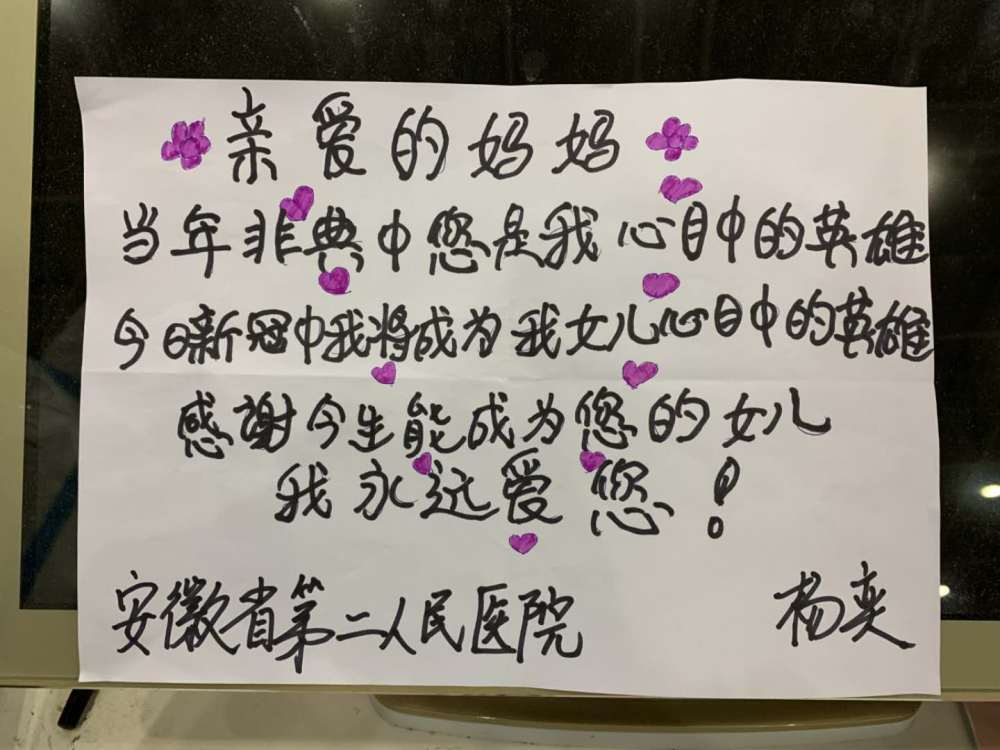 亲爱的妈妈
当年非典中您是我心目中的英雄
今日新冠中我将成为我女儿心目中的英雄
感谢今生能成为您的女儿
我永远爱您！
安徽省第二人民医院 杨奕